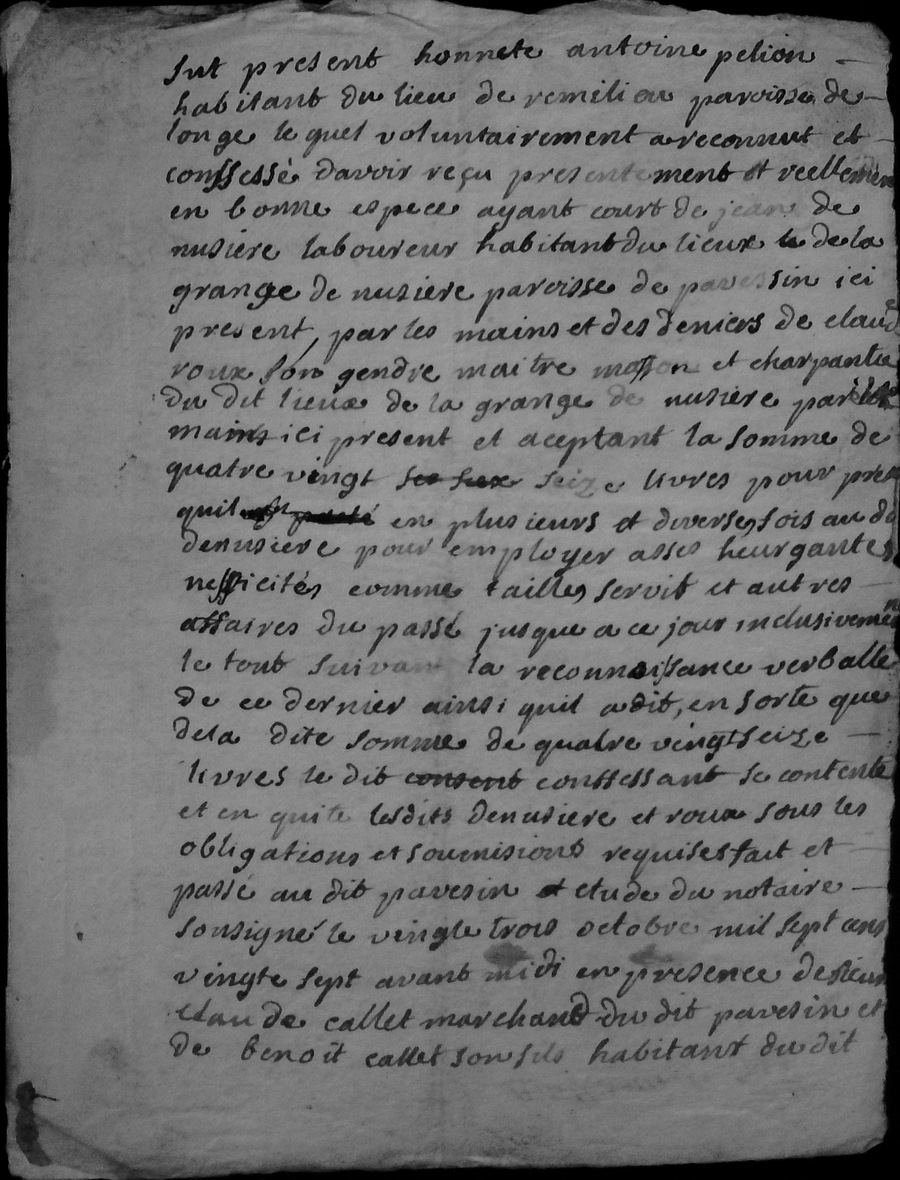 fut present honnete antoine pelion
habitant du lieu de remilieu paroisse de
longe lequel voluntairement a reconnut et
conffessé davoir reçu presentement et reellemen
en bonne espece ayant court de jean de
nusiere laboureur habitant du lieux de la
grange de nusiere paroisse de pavessin ici
present, par les mains et des deniers de claud
roux son gendre maitre masson et charpantie
du dit lieux de la grange de nusiere par
mains ici present et aceptant la somme de
quatre vingt seize livres pour pres
quil en plusieurs et diverses fois au d
denusiere pour employer asses heurgantes
nessicités comme tailles servit et autres
affaires du passé jusque a ce jour inclusivemen
le tout suivant la reconnaissance verballe
de ce dernier ainsi quil a dit, en sorte que
dela dite somme de quatre vingt seize
livres le dit consent conffessant se contente
et en quite lesdits denusiere et roux sous les
obligations et soumisions requises fait et
passé au dit pavesin et etude du notaire
sousigné le vingte trois octobre mil sept cens
vingte sept avant midi en presence de sieur
claude callet marchand du dit pavesin et
de benoit callet son fils habitant du dit